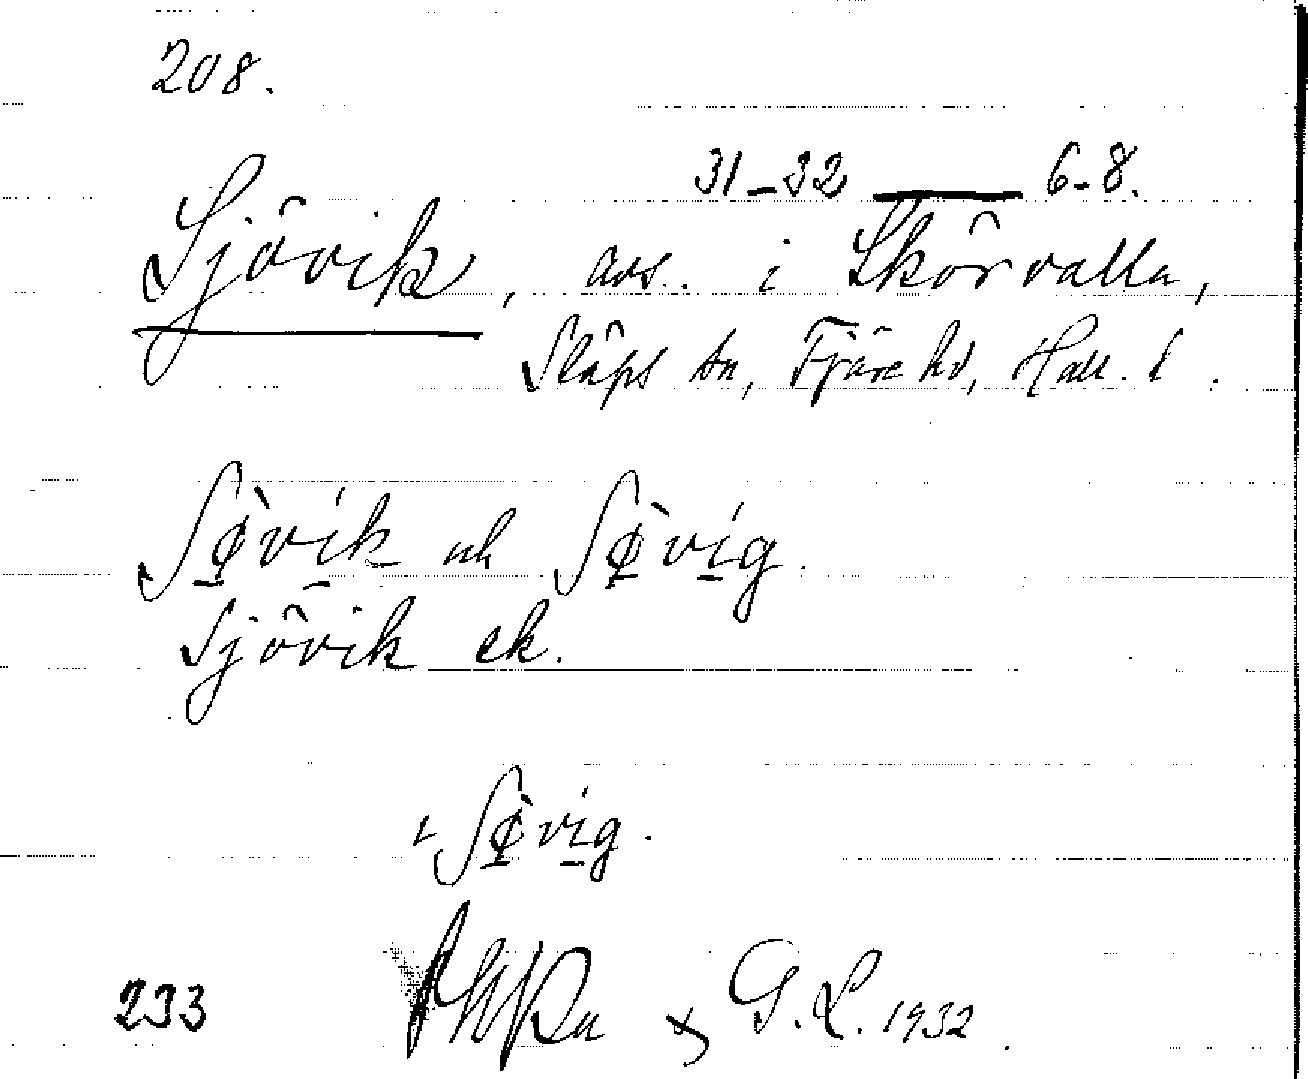 208.
31-32 — 6-8.
Sjövik, avs. i Skörvalla,
Släps sn, Fjäre hd, Hall. l.
Sø̀vík och Sø̀víg.
Sjövik ek.
Sø̀víg.
233 G.L. 1932